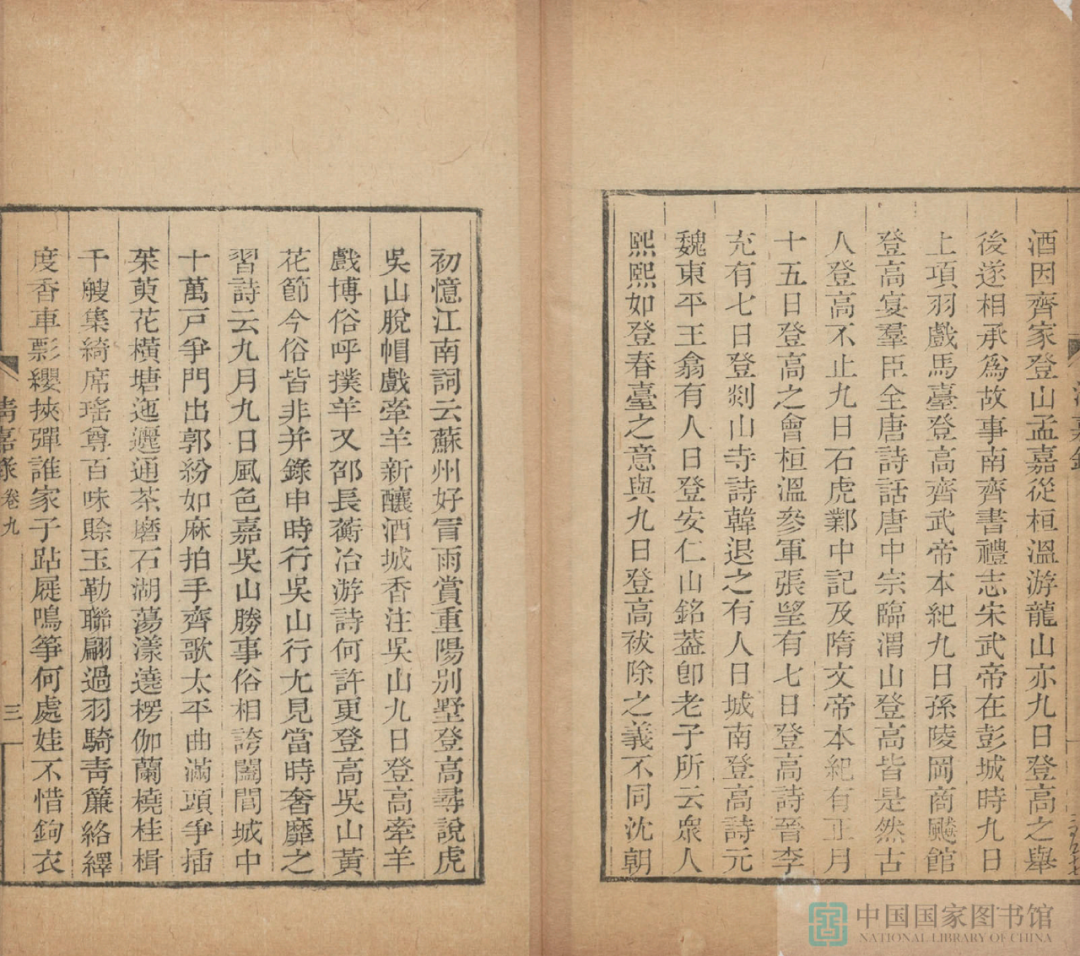 酒因齊家登山孟嘉從桓溫游龍山亦九日登高之舉
後遂相承爲故事南齊書禮志宋武帝在彭城時九日
上項羽戲馬臺登高齊武帝本紀九日孫陵岡商飈館
登高宴羣臣全唐詩話唐中宗臨渭山登高皆是然古
人登高不止九日石虎鄴中記及隋文帝本紀有正月
十五日登高之會桓溫參軍張望有七日登高詩晉李
充有七日登剡山寺詩韓退之有人日城南登高詩元
魏東平王翕有人日登安仁山銘葢卽老子所云衆人
熙熙如登春臺之意與九日登高祓除之義不同沈朝
初憶江南詞云蘇州好冒雨賞重陽別墅登高尋說虎
吳山脫帽戲牽羊新釀酒城香注吳山九日登高牽羊
戲博俗呼撲羊又邵長蘅冶游詩何許更登高吳山黃
花節今俗皆非并錄申時行吳山行尢見當時奢靡之
習詩云九月九日風色嘉吳山勝事俗相誇闔閭城中
十萬戸爭門出郭紛如麻拍手齊歌太平曲滿頭爭插
茱萸花橫塘迤邐通茶磨石湖蕩漾遶楞伽蘭橈桂楫
千艘集綺席瑤尊百味賒玉勒聯翩過羽騎靑簾絡繹
度香車彯纓挾彈誰家子跕屣鳴箏何處娃不惜鉤衣
淸嘉錄
淸嘉錄 卷九
三
中国国家图书馆
NATIONAL LIBRARY OF CHINA